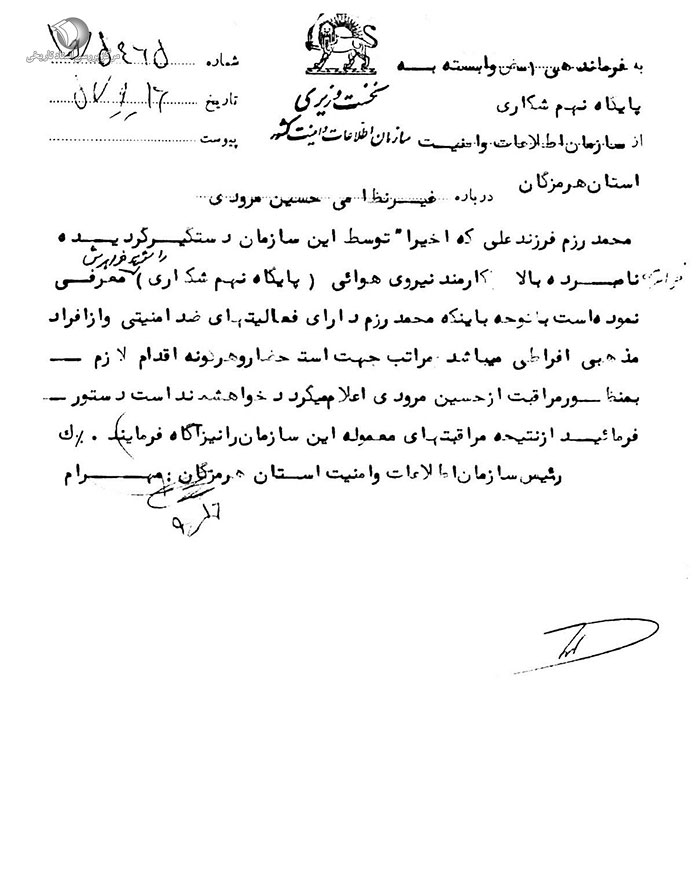 مرکز بررسی اسناد تاریخی
نخست وزیری
سازمان اطلاعات و امنیت کشور
شماره
تاریخ
پیوست
به فرماندهی وابسته بــه
پایگاه نهم شکاری
از سازمان اطلاعات وامنیت
استان هرمزگان
درباره غیرنظامی حسین مرودی
محمد رزم فرزند علی که اخیرا" توسط این سازمان دستگیرگردیده
نامبرده بالا کارمند نیروی هوائی (پایگاه نهم شکاری) معرفی
نموده‌است باتوجه باینکه محمد رزم دارای فعالیتهای ضد امنیتی وازافراد
مذهبی افراطی میباشد مراتب جهت استحضاروهرگونه اقدام لازم
بمنظورمراقبت ازحسین مرودی اعلام‌میگردد خواهشمند است دستور
فرمائید ازنتیحه مراقبتهای معموله این سازمان رانیزآگاه فرمایند . ک%
رئیس سازمان اطلاعات وامنیت استان هرمزگان : مهرام